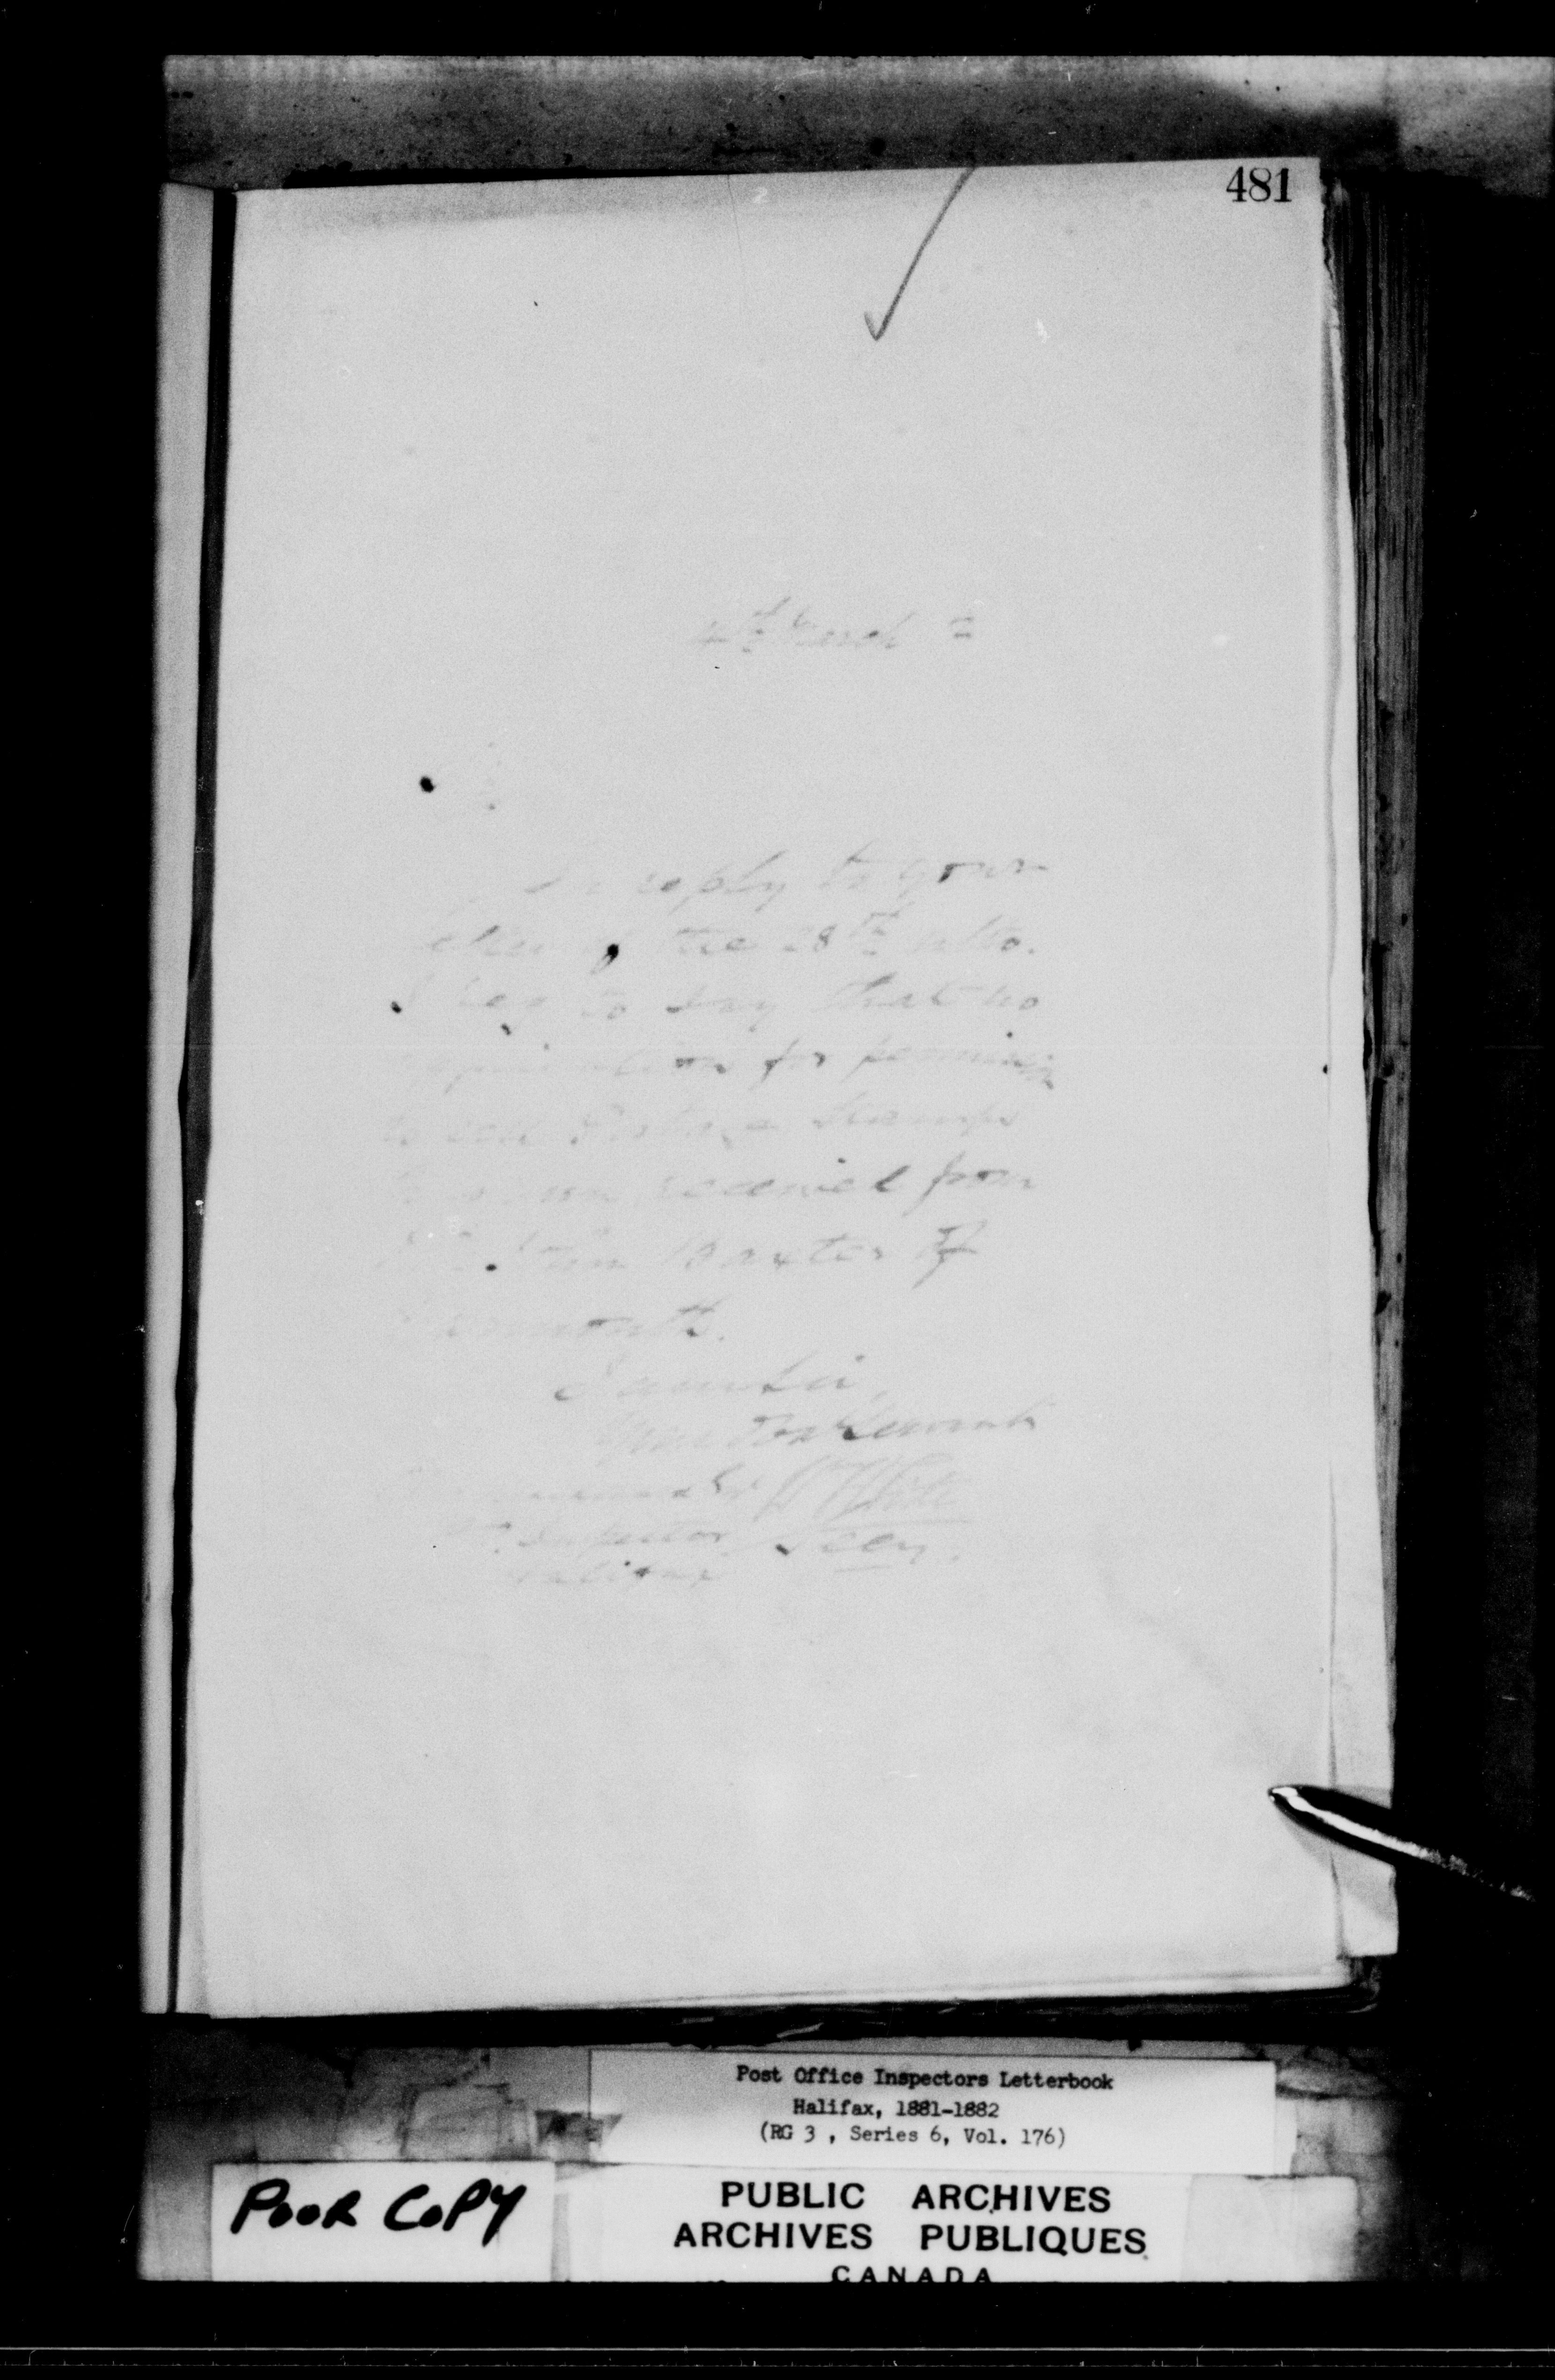 481
4th March 2
In reply to your
letter of the 28th ulto.
I beg to say that no
for permission
to sell Postage Stamps
received from
Baxter of
I am Sir,
Your Obt Servant
White
Inspector Secy.
Halifax
Post Office Inspectors Letterbook
Halifax, 1881-1882
(RG 3 , Series 6, Vol. 176)
POOR COPY
PUBLIC ARCHIVES
ARCHIVES PUBLIQUES
CANADA